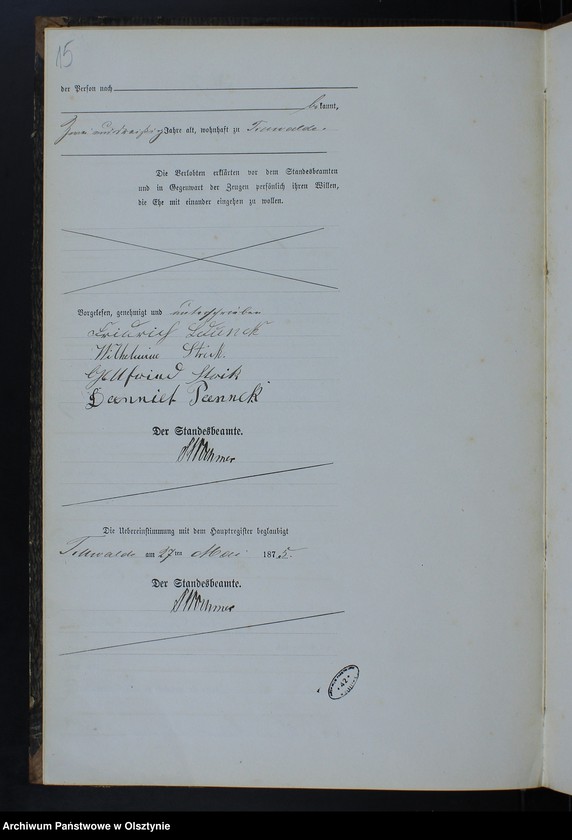 15
der Person nach
bekannt,
Zwei und dreißig Jahre alt, wohnhaft zu Tillwalde.
Die Verlobten erklärten vor dem Standesbeamten
und in Gegenwart der Zeugen persönlich ihren Willen,
die Ehe mit einander eingehen zu wollen.
Vorgelesen, genehmigt und unterschrieben
Friedrich
Wilhelmine
Gottfried
Danniel Pannek
Der Standesbeamte.
Die Uebereinstimmung mit dem Hauptregister beglaubigt
Tillwalde am 27ten Mai 1875.
Der Standesbeamte.
42
Archiwum Państwowe w Olsztynie